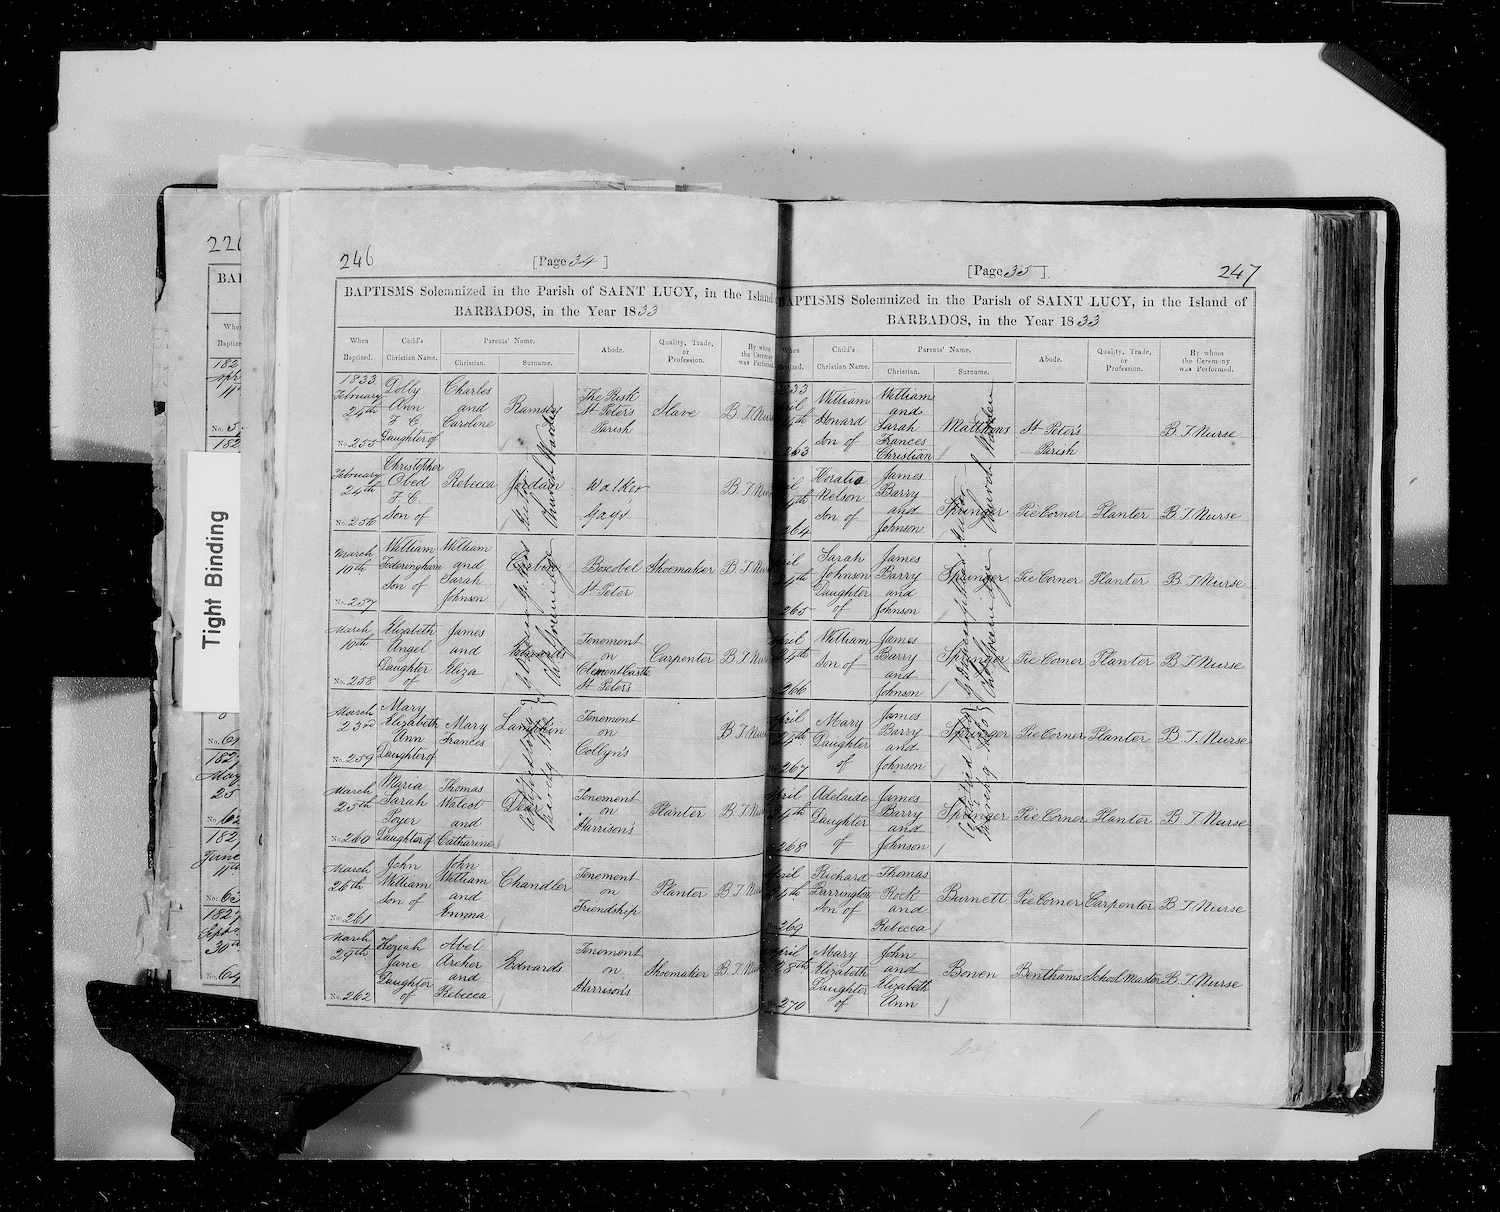 226
BAP
When
Baptized
182
Apr
11th
No. 5
182
Tight Binding
No. 61
1827
May
25
No. 62
1827
June
11th
No. 63
1827
Sept
30th
No. 64
246
[Page 34]
BAPTISMS Solemnized in the Parish of SAINT LUCY, in the Island
BARBADOS, in the Year 1833
When Baptized. Child's Christian Name. Parents' Name. Christian. Surname. Abode. Quality, Trade, or Profession. By whom the Ceremony was Performed.
1833 February 24th No. 255 Dolly Ann F C Daughter of Charles and Caroline Ramsey The Risk St Peter's Parish Slave B. T. Nurse
February 24th No. 256 Christopher Obed F C Son of Rebecca Jordan Walker Gays B. T. Nurse
March 10th No. 257 William Son of William and Sarah Johnson Boscobel St Peter Shoemaker B. T. Nurse
March 10th No. 258 Elizabeth Angel Daughter of James and Eliza Edwards Tenement on Clement Castle St Peter's Carpenter B. T. Nurse
March 23rd No. 259 Mary Elizabeth Ann Daughter of Mary Frances Lampkin Tenement on Collyn's B. T. Nurse
March 25th No. 260 Maria Sarah Poyer Daughter of Thomas and Catharine Tenement on Harrison's Planter B. T. Nurse
March 26th No. 261 John William Son of John William and Emma Chandler Tenement on Friendship Planter B. T. Nurse
March 29th No. 262 Keziah Jane Daughter of Abel Archer and Rebecca Edwards Tenement on Harrison's Shoemaker B. T. Nurse
Church Warden
[Page 35]
247
BAPTISMS Solemnized in the Parish of SAINT LUCY, in the Island of
BARBADOS, in the Year 1833
When Baptized. Child's Christian Name. Parents' Name. Christian. Surname. Abode. Quality, Trade, or Profession. By whom the Ceremony was Performed.
1833 April 263 William Howard Son of William and Sarah Frances Christian Matthews St Peter's Parish B. T. Nurse
264 Horatio Nelson Son of James Barry and Johnson Springer Pie Corner Planter B. T. Nurse
April 265 Sarah Johnson Daughter of James Barry and Johnson Springer Pie Corner Planter B. T. Nurse
April 24th 266 William Son of James Barry and Johnson Springer Pie Corner Planter B. T. Nurse
April 24th 267 Mary Daughter of James Barry and Johnson Springer Pie Corner Planter B. T. Nurse
April 24th 268 Adelaide Daughter of James Barry and Johnson Springer Pie Corner Planter B. T. Nurse
April 269 Richard Barrington Son of Thomas Rock and Rebecca Burnett Pie Corner Carpenter B. T. Nurse
April 28th 270 Mary Elizabeth Daughter of John and Elizabeth Ann Bowen Benthams School Master B. T. Nurse
Church Warden